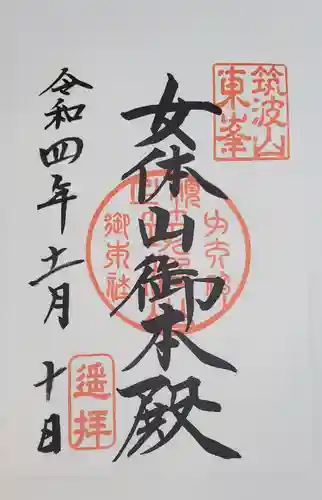 筑波山
東峯
女体山御本殿
令和四年十一月十日
遥拝